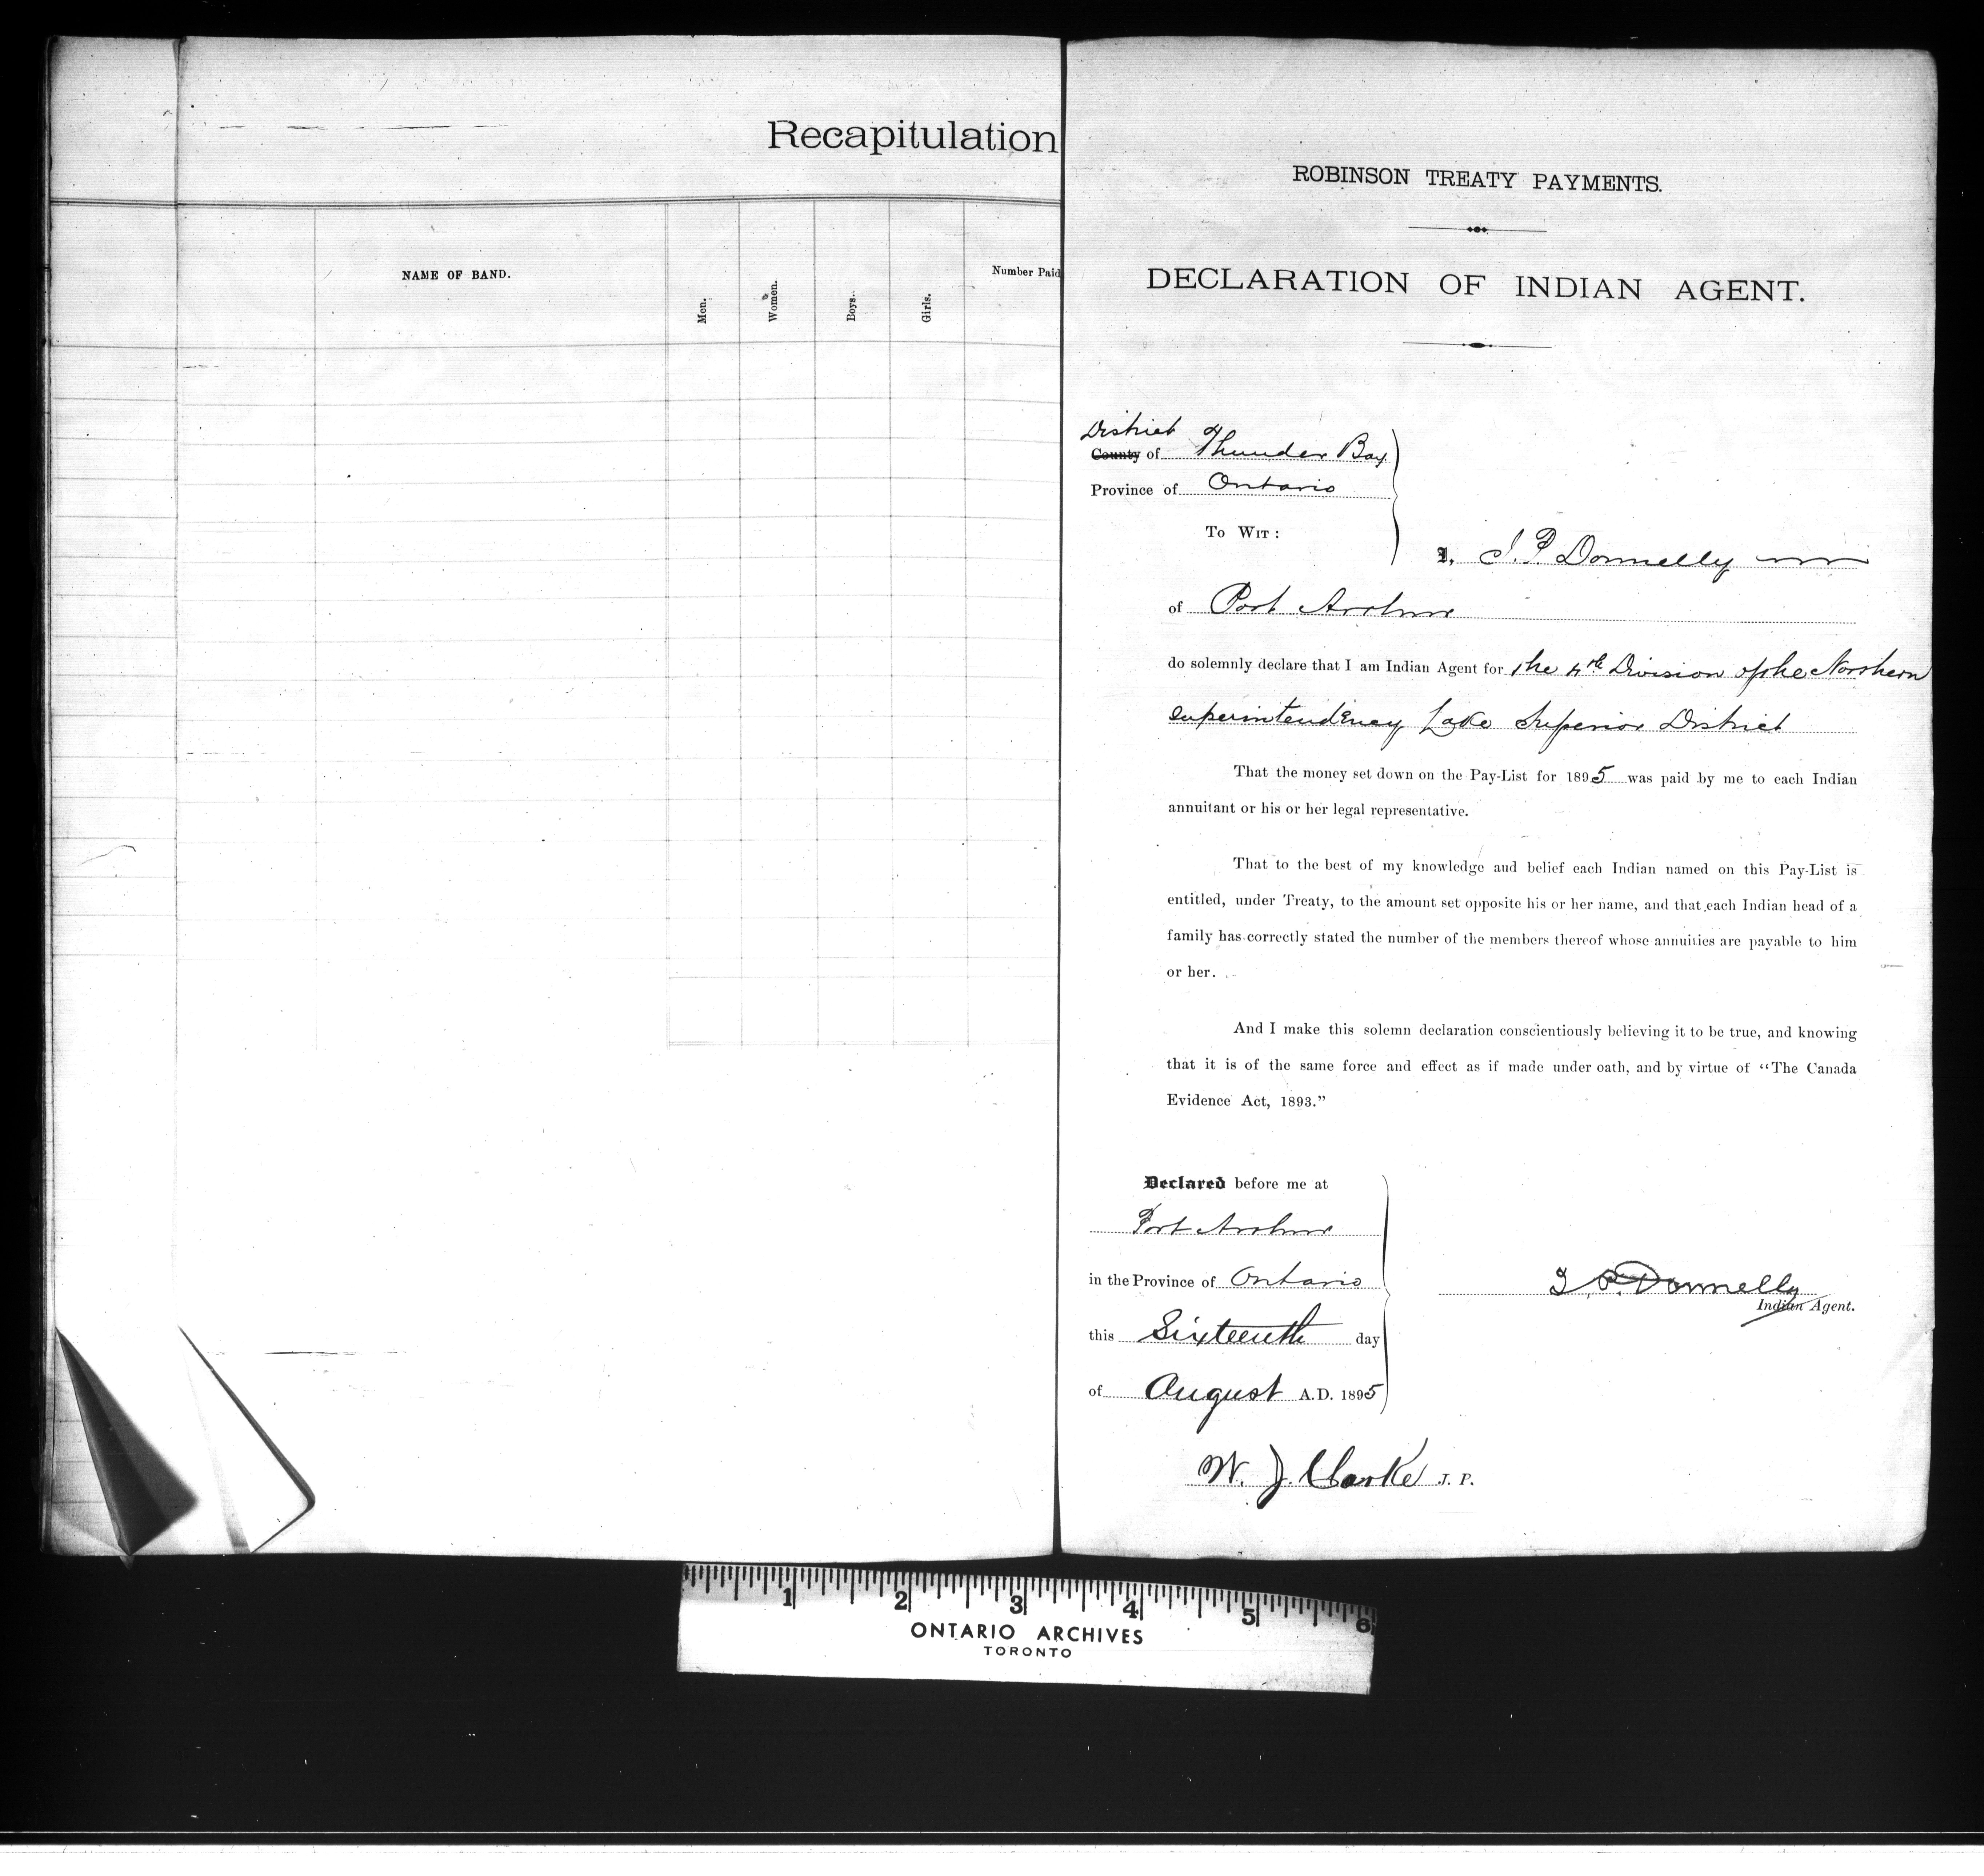 Recapitulation
NAME OF BAND.
Men.
Women.
Boys.
Girls.
Number Paid
ROBINSON TREATY PAYMENTS.
DECLARATION OF INDIAN AGENT.
District
County of Thunder Bay
Province of Ontario
To Wit:
I, J. P Donnelly
of Port Arthur
do solemnly declare that I am Indian Agent for the 4th Division of the Northern
Superintendency Lake Superior District
That the money set down on the Pay-List for 1895 was paid by me to each Indian
annuitant or his or her legal representative.
That to the best of my knowledge and belief each Indian named on this Pay-List is
entitled, under Treaty, to the amount set opposite his or her name, and that each Indian head of a
family has correctly stated the number of the members thereof whose annuities are payable to him
or her.
And I make this solemn declaration conscientiously believing it to be true, and knowing
that it is of the same force and effect as if made under oath, and by virtue of "The Canada
Evidence Act, 1893."
Declared before me at
Port Arthur
in the Province of Ontario
this Sixteenth day
of August A.D. 1895
J. P. Donnelly
Indian Agent.
W. J. Clarke J. P.
1 2 3 4 5 6
ONTARIO ARCHIVES
TORONTO